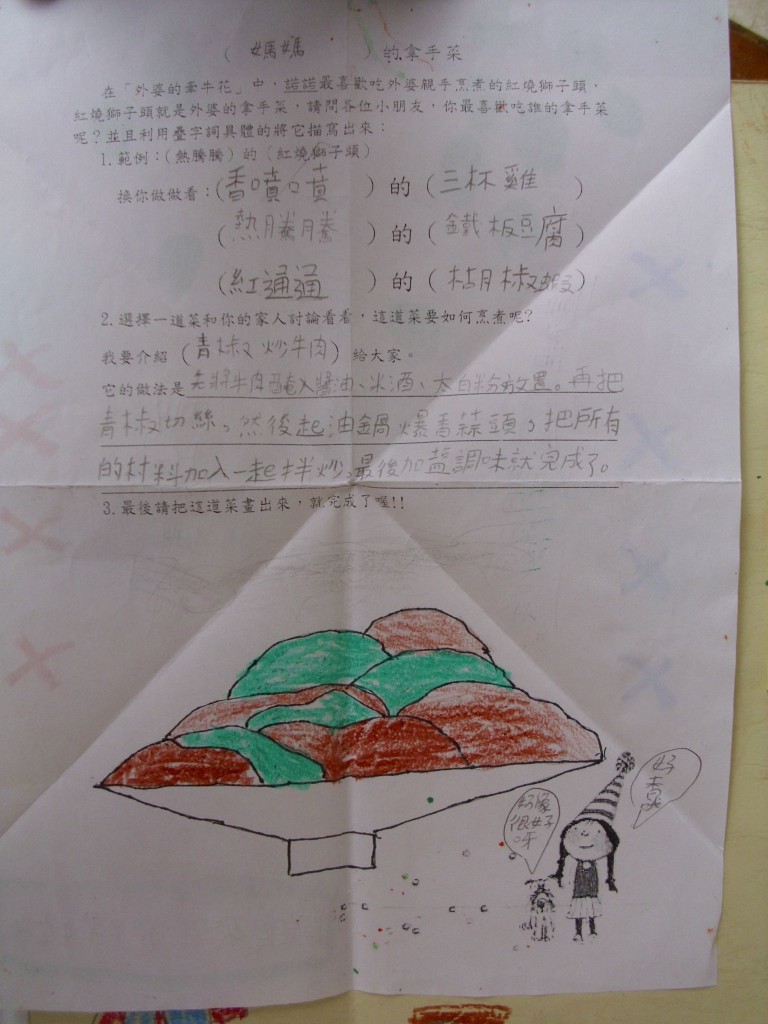 (媽媽)的拿手菜
在「外婆的牽牛花」中，諾諾最喜歡吃外婆親手烹煮的紅燒獅子頭，
紅燒獅子頭就是外婆的拿手菜，請問各位小朋友，你最喜歡吃誰的拿手菜
呢？並且利用疊字詞具體的將它描寫出來：
1.範例：(熱騰騰)的(紅燒獅子頭)
換你做做看：(香噴噴)的(三杯雞)
(熱騰騰)的(鐵板豆腐)
(紅通通)的(胡椒蝦)
2.選擇一道菜和你的家人討論看看，這道菜要如何烹煮呢？
我要介紹(青椒炒牛肉)給大家。
它的做法是先將牛肉醃入醬油、米酒、太白粉放置。再把
青椒切絲，然後起油鍋爆香蒜頭，把所有
的材料加入一起拌炒，最後加鹽調味就完成了。
3.最後請把這道菜畫出來，就完成了喔!!
好香
好像
很好
呀